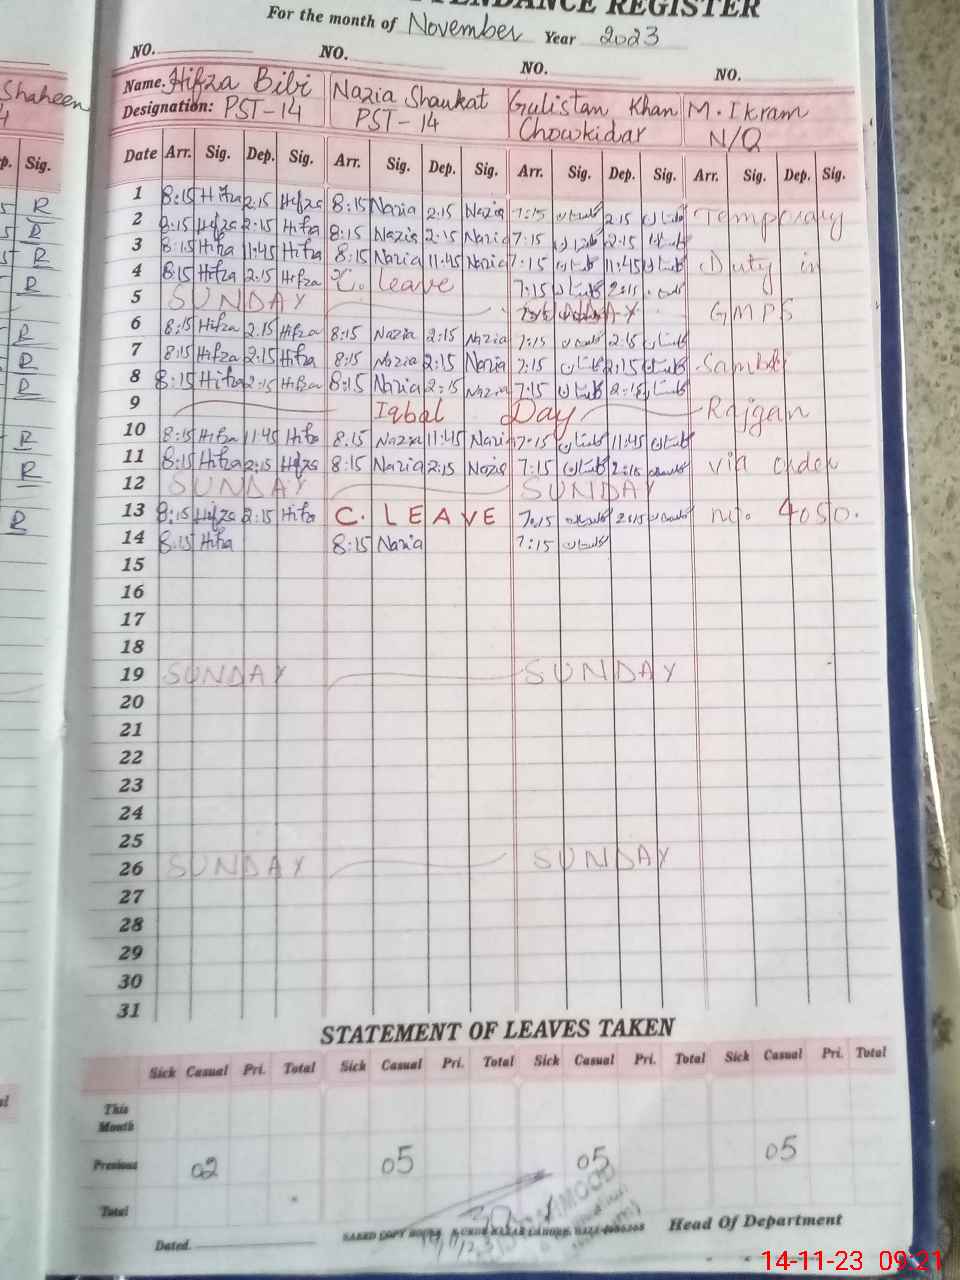 ATTENDANCE REGISTER
For the month of November Year 2023
NO. NO. NO. NO.
Shaheen Name. Hifza Bibi Nazia Shaukat Gulistan Khan M. Ikram
Designation: PST-14 PST-14 Chowkidar N/Q
Sig. Date Arr. Sig. Dep. Sig. Arr. Sig. Dep. Sig. Arr. Sig. Dep. Sig. Arr. Sig. Dep. Sig.
R 1 8:15 Hifza 2:15 Hifza 8:15 Nazia 2:15 Nazia 7:15 گلستان 2:15 گلستان Temporary
R 2 8:15 Hifza 2:15 Hifza 8:15 Nazia 2:15 Nazia 7:15 گلستان 2:15 گلستان
R 3 8:15 Hifza 11:45 Hifza 8:15 Nazia 11:45 Nazia 7:15 گلستان 11:45 گلستان Duty in
R 4 8:15 Hifza 2:15 Hifza C. leave 7:15 گلستان 2:15 گلستان
5 SUNDAY GMPS
R 6 8:15 Hifza 2:15 Hifza 8:15 Nazia 2:15 Nazia 7:15 گلستان 2:15 گلستان
R 7 8:15 Hifza 2:15 Hifza 8:15 Nazia 2:15 Nazia 7:15 گلستان 2:15 گلستان
R 8 8:15 Hifza 2:15 Hifza 8:15 Nazia 2:15 Nazia 7:15 گلستان 2:15 گلستان
9 Iqbal Day Rajgan
R 10 8:15 Hifza 11:45 Hifza 8:15 Nazia 11:45 Nazia 7:15 گلستان 11:45 گلستان
R 11 8:15 Hifza 2:15 Hifza 8:15 Nazia 2:15 Nazia 7:15 گلستان 2:15 گلستان via order
12 SUNDAY SUNDAY
R 13 8:15 Hifza 2:15 Hifza C. LEAVE 7:15 گلستان 2:15 گلستان no. 4050.
14 8:15 Hifza 8:15 Nazia 7:15 گلستان
15
16
17
18
19 SUNDAY SUNDAY
20
21
22
23
24
25
26 SUNDAY SUNDAY
27
28
29
30
31
STATEMENT OF LEAVES TAKEN
Sick Casual Pri. Total Sick Casual Pri. Total Sick Casual Pri. Total Sick Casual Pri. Total
This Month
Previous 02 05 05 05
Total
Dated. Head Of Department
14-11-23 09:21